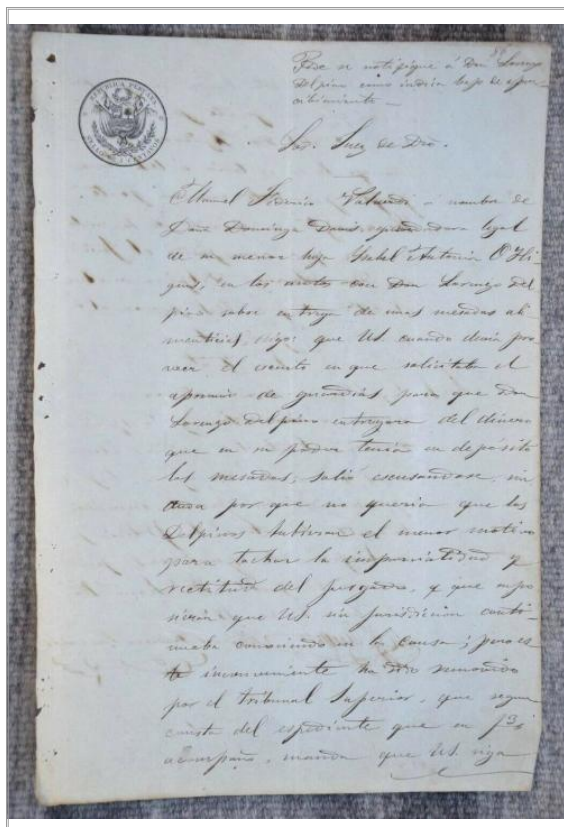 Pide se notifique á Don Lorenzo
Delpino como indica bajo de aper-
cibimiento —
Sor. Juez de Dro.
Manuel Valverde á nombre de
Doña Dominga legal
de su menor hija Ysabel Antonia O'Hi-
gins, en los autos con Don Lorenzo del
pino sobre entrega de unas mesadas ali
menticias, digo: que US. cuando devia pro
veer el escrito en que solicitaba el
apremio de guardias para que Don
Lorenzo Delpino entregara del dinero
que en su poder tenia en depósito
las mesadas, salió escusandose, sin
duda por que no queria que los
Delpinos tubieran el menor motivo
para tachar la imparcialidad y
rectitud del Juzgado, y que supu
sieran que US. sin jurisdiccion conti-
nuaba conociendo en la causa; pero es
te inconveniente ha sido removido
por el tribunal Superior, que segun
consta del espediente que en f.s
acompaño, manda que US. siga